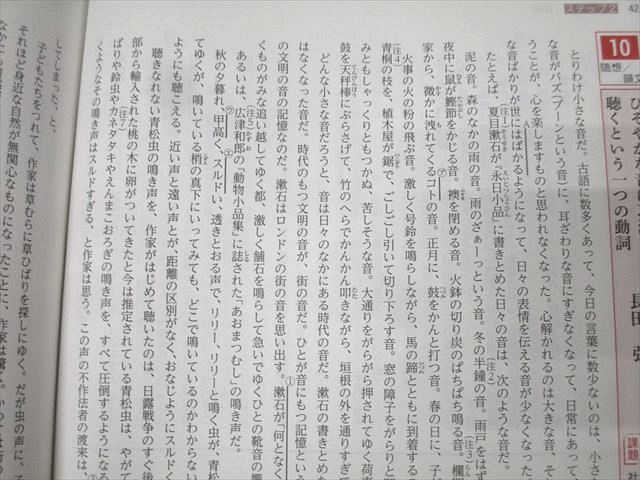 ステップ2
42
10
随想／
聴くという一つの動詞
長田　弘
課題
とりわけ小さな音だ。古語に数多くあって、今日の言葉に数少ないのは、小さ
な音がバズ（ブーンという音）に、耳ざわりな音にすぎなくなって、日常にあって、
うことが、心を楽しますものと思われなくなった。心解かれるのは大きな音、そ
な音ばかりが世にはばかるようになって、日々の表情を伝える音が少なくなった
たとえば、夏目漱石が「永日小品」に書きとめた日々の音は、次のような音だ。
泥の音。森のなかの雨の音。雨のざぁーっという音。冬の半鐘の音。雨戸をはず
夜中に鼠が鰹節をかじる音。襖を閉める音。火鉢の切り炭のぱちぱち鳴る音。欄間
家から、微かに洩れてくるコトの音。正月に、鼓をかんと打つ音。春の日に、子ど
火事の火の粉の飛ぶ音。激しく号鈴を鳴らしながら、馬の蹄とともに到着する
青桐の枝を、植木屋が鋸で、ごしごし引いて切り下ろす音。窓の障子をがらりと開
みともしゃっくりともつかぬ、苦しそうな音。大通りをがらがら押されてゆく荷車
鼓を天秤棒にぶらさげて、竹のへらでかんかん叩きながら、垣根の外を通りすぎて
どんな小さな音だろうと、音は日々のなかにある時代の音だ。漱石の書きとめた
はなくなった音だ。時代のもつ文明の音が、街の音だ。ひとが音にもつ記憶という
の文明の音の記憶なのだ。漱石はロンドンの街の音を思い出す。漱石が「何となく
くものがみな追い越してゆく都、激しく舗石を鳴らして急いでゆくひとの靴音の慨
あるいは、広津和郎の「動物小品集」に誌された「あおまつむし」の鳴き声だ。
秋の夕暮れ、甲高く、スルドい、透きとおる声で、リリー、リリーと鳴く虫が、青松
てゆくが、鳴いている梢の真下にいってみても、どこで鳴いているのかわからない
ようにも聴こえる。近い声と遠い声とが、距離の区別がなく、おなじようにスルドく
聴きなれない青松虫の鳴き声を、作家がはじめて聴いたのは、日露戦争のすぐ後
部から輸入された桃の木に卵がついてきたと今は推定されている青松虫は、やがて
ばりや鈴虫やカネタタキやえんまこおろぎの鳴き声を、すべて圧倒するようになる
くようなその鳴き声はスルドすぎる、と作家は思う。この声の不作法者の渡来は、
してしまった、と。
子どもたちをつれて、作家は草むらに草ひばりを探しにゆく。だが虫の声に、子
それほど身近な自然が無関心なものになったことに、作家は驚く